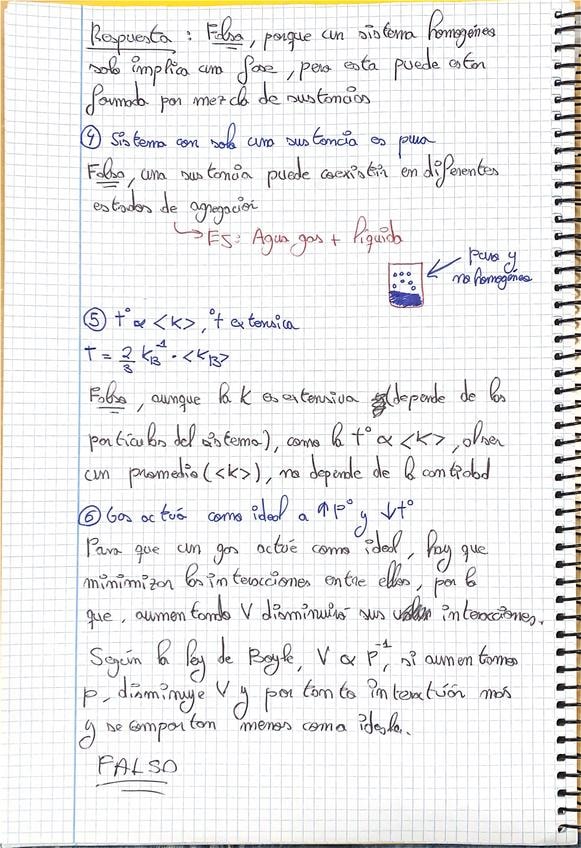 Respuesta : Falsa, porque un sistema homogéneo
solo implica una fase, pero esta puede estar
formada por mezcla de sustancias
④ Sistema con solo una sustancia es pura
Falso, una sustancia puede coexistir en diferentes
estados de agregación
↳ ES: Agua gas + líquida
pura y
no homogénea
⑤ t° ∝ <K>, °t extensiva
T = 2/3 K_B^-1 · <K_B>
Falso, aunque la K es extensiva (depende de las
partículas del sistema), como la t° ∝ <K>, al ser
un promedio (<K>), no depende de la cantidad
⑥ Gas actúa como ideal a ↑P° y ↓t°
Para que un gas actúe como ideal, hay que
minimizar las interacciones entre ellas, por lo
que, aumentando V disminuirá sus interacciones.
Según la ley de Boyle, V ∝ P^-1, si aumentamos
p, disminuye V y por tanto interactúan más
y se comportan menos como ideales.
FALSO